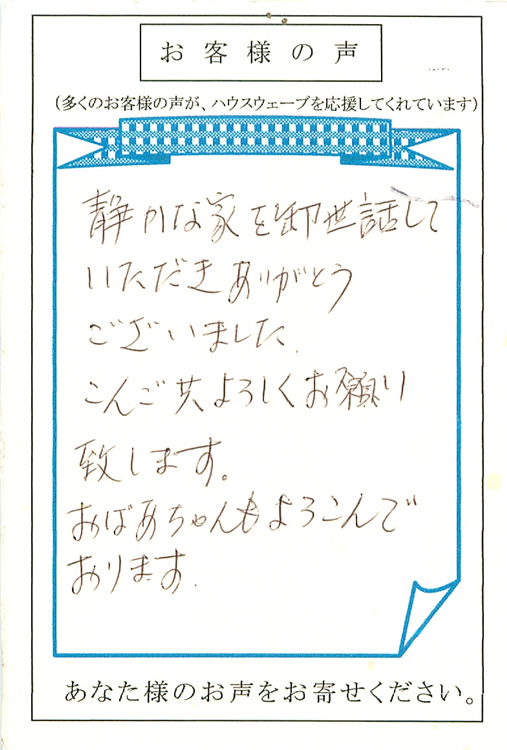 お客様の声
（多くのお客様の声が、ハウスウェーブを応援してくれています）
静かな家を御世話して
いただきありがとう
ございました.
こんご共よろしくお願り
致します。
おばあちゃんもよろこんで
おります.
あなた様のお声をお寄せください。